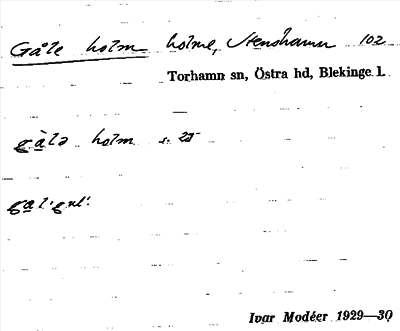 Gåle holm holme, Stenshamn 102
Torhamn sn, Östra hd, Blekinge l.
gàlə holm s. 25
gal·gul:
Ivar Modéer 1929—30